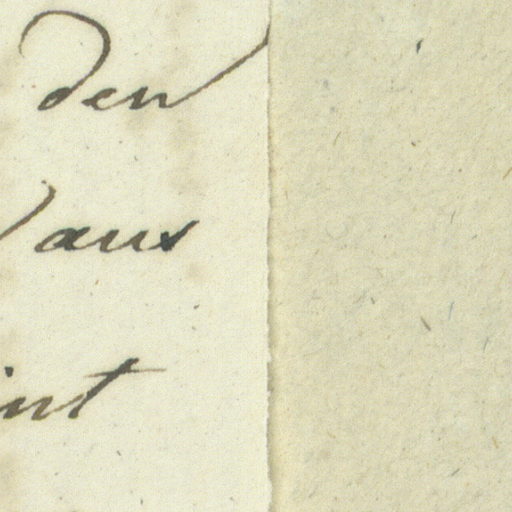 den
aus
int